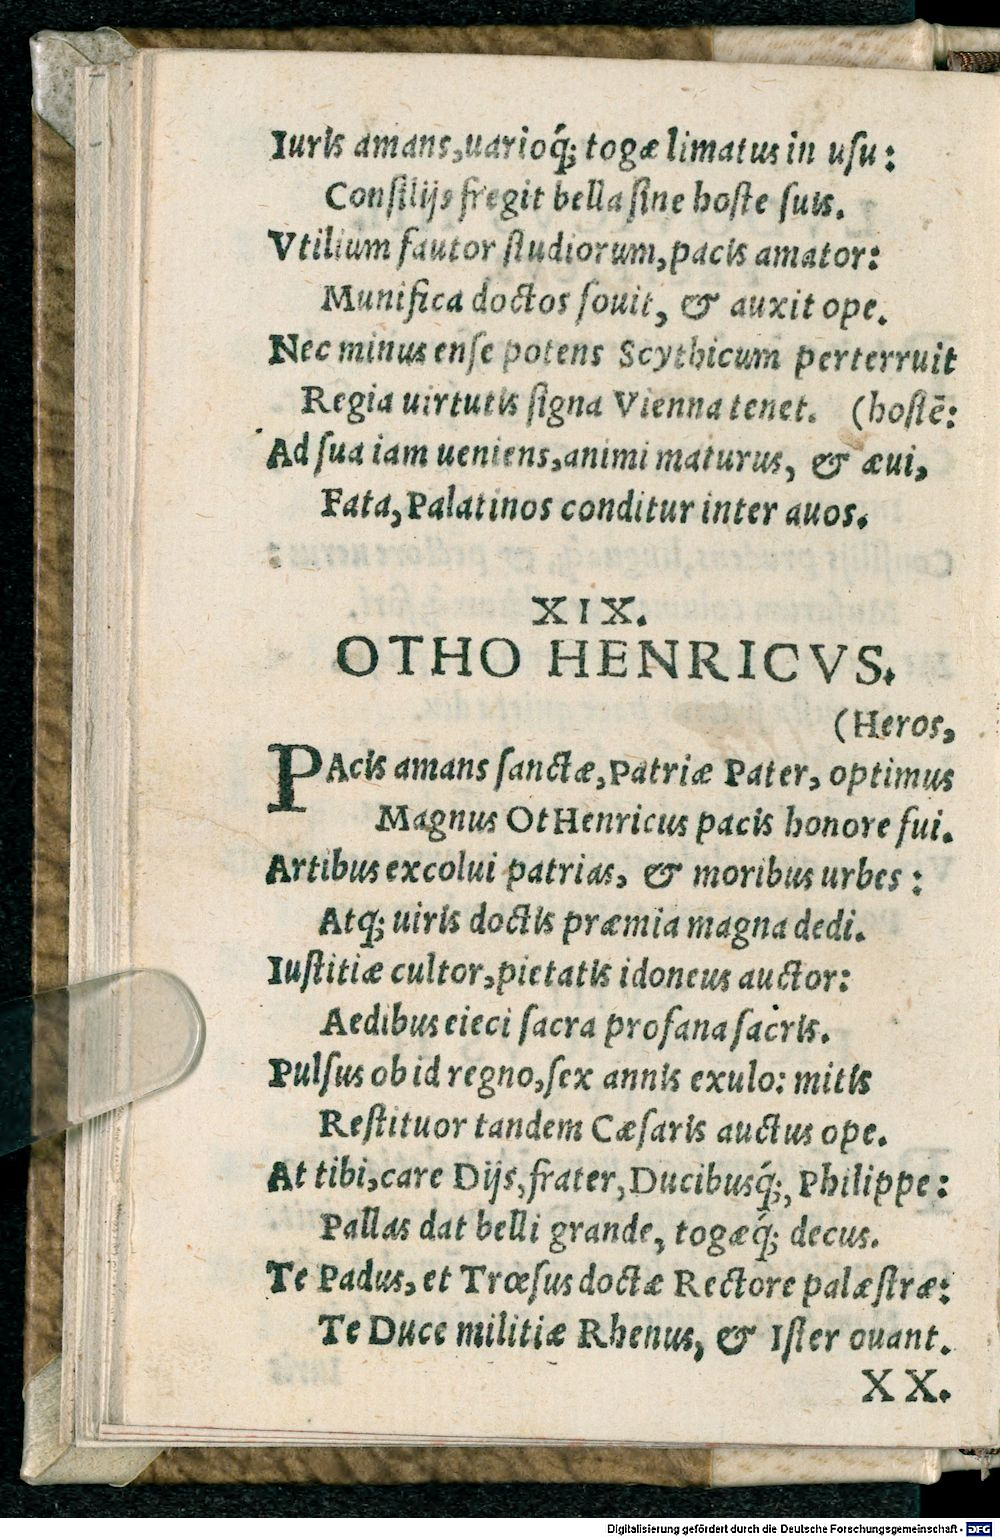 Iuris amans, uarioq́; togæ limatus in uſu:
Conſilijs fregit bella ſine hoſte ſuis.
Vtilium fautor ſtudiorum, pacis amator:
Munifica doctos fouit, & auxit ope.
Nec minus enſe potens Scythicum perterruit
Regia uirtutis ſigna Vienna tenet. (hoſtē:
Ad ſua iam ueniens, animi maturus, & æui,
Fata, Palatinos conditur inter auos.
XIX.
OTHO HENRICVS.
(Heros,
PAcis amans ſanctæ, Patriæ Pater, optimus
Magnus OtHenricus pacis honore fui.
Artibus excolui patrias, & moribus urbes:
Atq; uiris doctis præmia magna dedi.
Iuſtitiæ cultor, pietatis idoneus auctor:
Aedibus eieci ſacra profana ſacris.
Pulſus ob id regno, ſex annis exulo: mitis
Reſtituor tandem Cæſaris auctus ope.
At tibi, care Dijs, frater, Ducibusq́;, Philippe:
Pallas dat belli grande, togæq́; decus.
Te Padus, et Trœſus doctæ Rectore palæſtræ:
Te Duce militiæ Rhenus, & Iſter ouant.
XX.
Digitalisierung gefördert durch die Deutsche Forschungsgemeinschaft - DFG